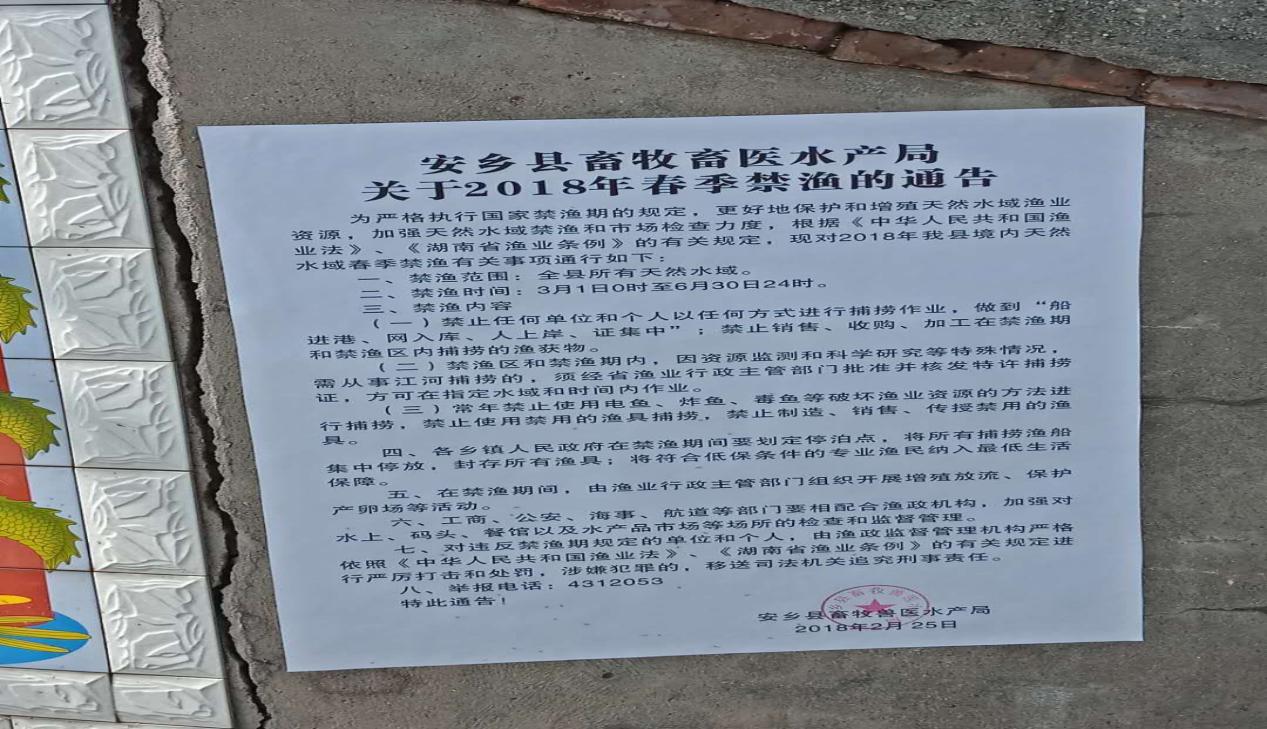 安乡县畜牧畜医水产局
关于2018年春季禁渔的通告
为严格执行国家禁渔期的规定，更好地保护和增殖天然水域渔业
资源，加强天然水域禁渔和市场检查力度，根据《中华人民共和国渔
业法》、《湖南省渔业条例》的有关规定，现对2018年我县境内天然
水域春季禁渔有关事项通行如下：
一、禁渔范围：全县所有天然水域。
二、禁渔时间：3月1日0时至6月30日24时。
三、禁渔内容
（一）禁止任何单位和个人以任何方式进行捕捞作业，做到“船
进港、网入库、人上岸、证集中”；禁止销售、收购、加工在禁渔期
和禁渔区内捕捞的渔获物。
（二）禁渔区和禁渔期内，因资源监测和科学研究等特殊情况，
需从事江河捕捞的，须经省渔业行政主管部门批准并核发特许捕捞
证，方可在指定水域和时间内作业。
（三）常年禁止使用电鱼、炸鱼、毒鱼等破坏渔业资源的方法进
行捕捞，禁止使用禁用的渔具捕捞，禁止制造、销售、传授禁用的渔
具。
四、各乡镇人民政府在禁渔期间要划定停泊点，将所有捕捞渔船
集中停放，封存所有渔具；将符合低保条件的专业渔民纳入最低生活
保障。
五、在禁渔期间，由渔业行政主管部门组织开展增殖放流、保护
产卵场等活动。
六、工商、公安、海事、航道等部门要相配合渔政机构，加强对
水上、码头、餐馆以及水产品市场等场所的检查和监督管理。
七、对违反禁渔期规定的单位和个人，由渔政监督管理机构严格
依照《中华人民共和国渔业法》、《湖南省渔业条例》的有关规定进
行严厉打击和处罚，涉嫌犯罪的，移送司法机关追究刑事责任。
八、举报电话：4312053
特此通告！
安乡县畜牧兽医水产局
2018年2月25日